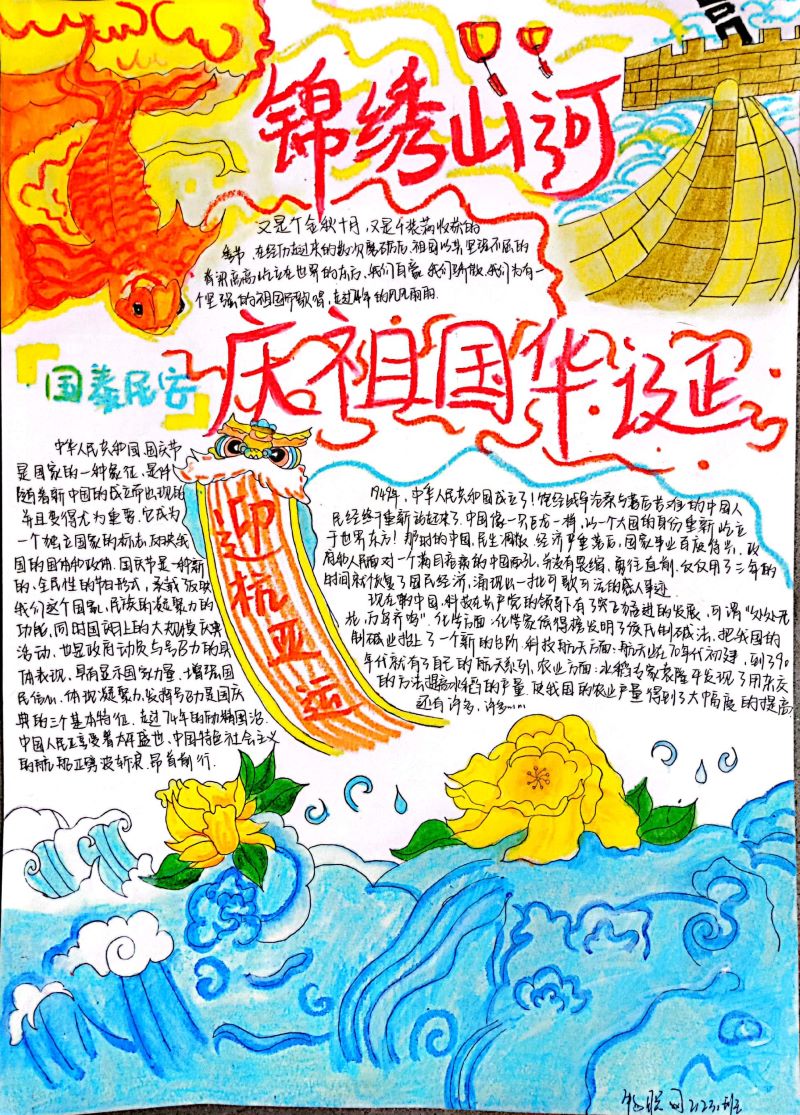 锦绣山河
又是个金秋十月,又是个装满收获的
季节,在经历过来的数次磨砺后,祖国以其坚强不屈的
脊梁高高屹立在世界的东方,我们自豪,我们骄傲,我们为有一
个坚强的祖国而歌唱,走过74年的风风雨雨.
庆祖国华诞
国泰民安
中华人民共和国国庆节
是国家的一种象征,是伴
随着新中国的成立而出现的
并且变得尤为重要.它成为
一个独立国家的标志,反映我
国的国体和政体.国庆节是一种新
的、全民性的节日形式,承载了反映
我们这个国家,民族的凝聚力的
功能,同时国庆日上的大规模庆典
活动,也是政府动员与号召力的具
体表现,早有显示国家力量、增强国
民信心,体现凝聚力,发挥号召力是国庆
典的三个基本特征.走过74年的励精图治.
中国人民正享受着太平盛世,中国特色社会主义
的航船正劈波斩浪、昂首前行.
迎杭亚运
1949年,中华人民共和国成立了!饱经战争沧桑与落后苦难的中国人
民经终于重新站起来了.中国像一只巨龙一样,以一个大国的身份重新屹立
于世界东方!那时的中国,民生凋敝,经济严重落后,国家事业百废待兴,政
府和人民面对一个满目疮痍的中国西孔,并没有畏缩,勇往直前,仅仅用了三年的
时间就恢复了国民经济,涌现出一批可歌可泣的感人事迹.
现在新中国,科技在共产党的领导下有了突飞猛进的发展,可谓“处处开
花,万鸟齐鸣”.化学方面:化学家侯得榜发明了侯氏制碱法,把我国的
制碱业抬上了一个新的台阶.科技航天方面:航天站在70年代初建,到了90
年代就有了自己的航天系列,农业方面:水稻专家袁隆平发现了用杂交
的方法提高水稻的产量,使我国的农业产量得到了大幅度的提高
还有许多,许多……